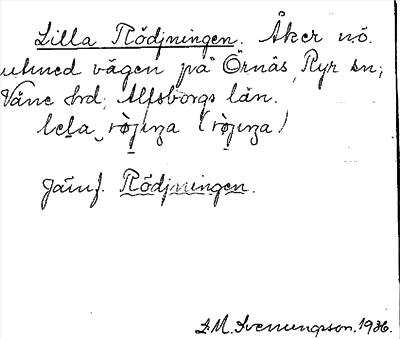 Lilla Rödjningen. Åker n.ö.
utmed vägen på Örnås, Ryr sn;
Väne hrd; Älfsborgs län.
Jämf. Rödjningen.
L.M. Svenungsson, 1936.